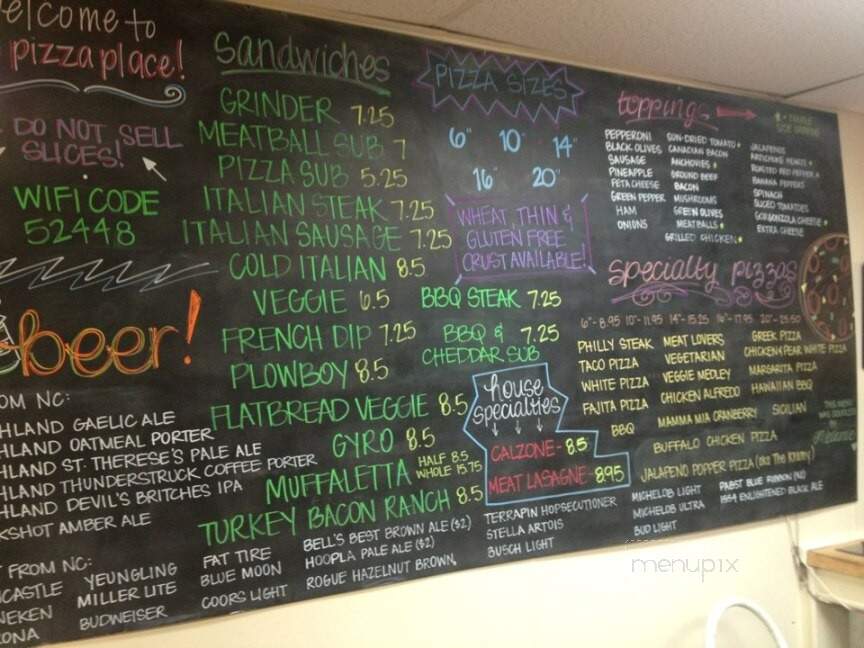 elcome to
pizza place!
DO NOT SELL
SLICES!
WIFI CODE
52448
beer!
OM NC:
HLAND GAELIC ALE
HLAND OATMEAL PORTER
HLAND ST. THERESE'S PALE ALE
HLAND THUNDERSTRUCK COFFEE PORTER
HLAND DEVIL'S BRITCHES IPA
KSHOT AMBER ALE
T FROM NC:
CASTLE
NEKEN
ONA
YEUNGLING
MILLER LITE
BUDWEISER
FAT TIRE
BLUE MOON
COORS LIGHT
BELL'S BEST BROWN ALE ($2)
HOOPLA PALE ALE ($2)
ROGUE HAZELNUT BROWN
TERRAPIN HOPSECUTIONER
STELLA ARTOIS
BUSCH LIGHT
MICHELOB LIGHT
MICHELOB ULTRA
BUD LIGHT
PABST BLUE RIBBON
1554 ENLIGHTENED BLACK ALE
Sandwiches
GRINDER 7.25
MEATBALL SUB 7
PIZZA SUB 5.25
ITALIAN STEAK 7.25
ITALIAN SAUSAGE 7.25
COLD ITALIAN 8.5
VEGGIE 6.5
FRENCH DIP 7.25
PLOWBOY 8.5
FLATBREAD VEGGIE 8.5
GYRO 8.5
MUFFALETTA HALF 8.5
WHOLE 15.75
TURKEY BACON RANCH 8.5
BBQ STEAK 7.25
BBQ & 7.25
CHEDDAR SUB
PIZZA SIZES
6" 10" 14"
16" 20"
WHEAT, THIN &
GLUTEN FREE
CRUST AVAILABLE!
house
specialties
CALZONE - 8.5
MEAT LASAGNE - 8.95
toppings
PEPPERONI
BLACK OLIVES
SAUSAGE
PINEAPPLE
FETA CHEESE
GREEN PEPPER
HAM
ONIONS
SUN-DRIED TOMATO
CANADIAN BACON
ANCHOVIES
GROUND BEEF
BACON
MUSHROOMS
GREEN OLIVES
MEATBALLS
GRILLED CHICKEN
JALAPENOS
ARTICHOKE HEARTS
ROASTED RED PEPPER
BANANA PEPPERS
SPINACH
SLICED TOMATOES
GORGONZOLA CHEESE
EXTRA CHEESE
specialty pizzas
6"-8.95 10"-11.95 14"-15.25 16"-17.95 20"-23.50
PHILLY STEAK
TACO PIZZA
WHITE PIZZA
FAJITA PIZZA
BBQ
MEAT LOVERS
VEGETARIAN
VEGGIE MEDLEY
CHICKEN ALFREDO
MAMMA MIA CRANBERRY
GREEK PIZZA
CHICKEN & PEAR WHITE PIZZA
MARGARITA PIZZA
HAWAIIAN BBQ
SICILIAN
BUFFALO CHICKEN PIZZA
JALAPENO POPPER PIZZA
THIS MENU
menupix